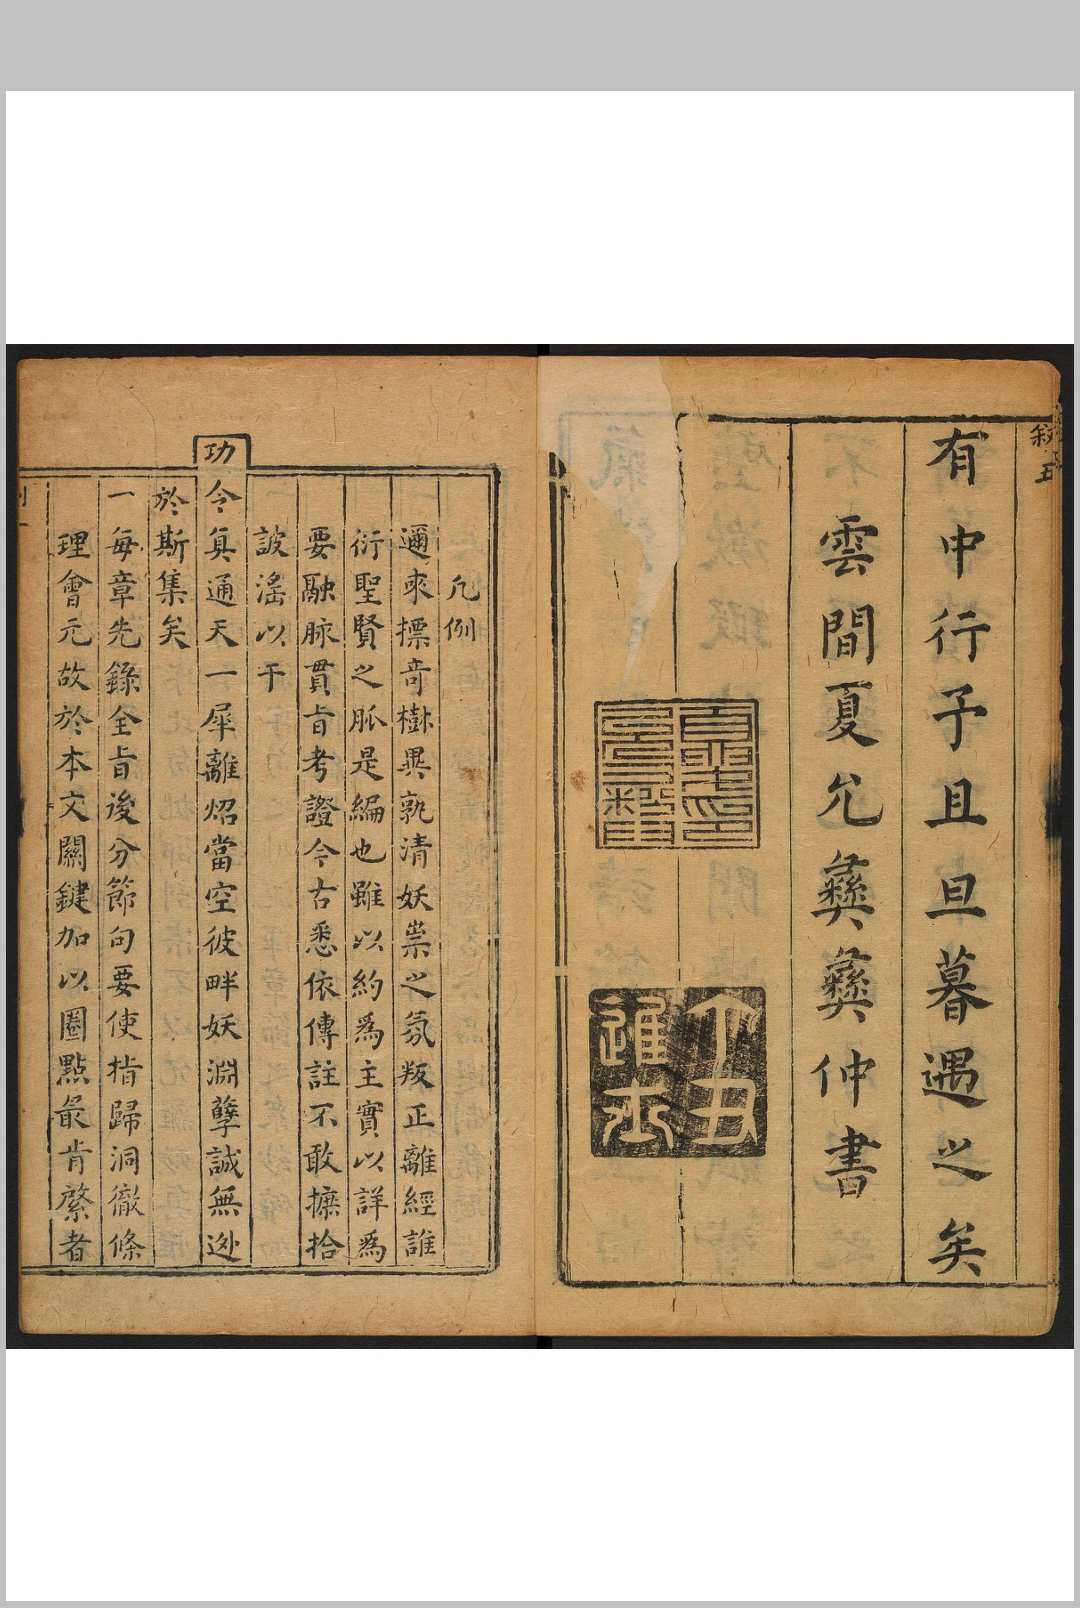 敘五
有中行予且旦暮遇之矣
雲間夏允彝彝仲書
丁丑進士
凡例
邇來摽竒樹異孰清妖祟之氛叛正離經誰
衍聖賢之脈是編也雖以約爲主實以詳爲
要融脉貫旨考證今古悉依傳註不敢摭拾
詖滛以干
功令真通天一犀離炤當空彼畔妖淵孽誠無逊
於斯集矣
一每章先錄全旨後分節句要使指歸洞徹條
理會元故於本文關鍵加以圈點最肯綮者